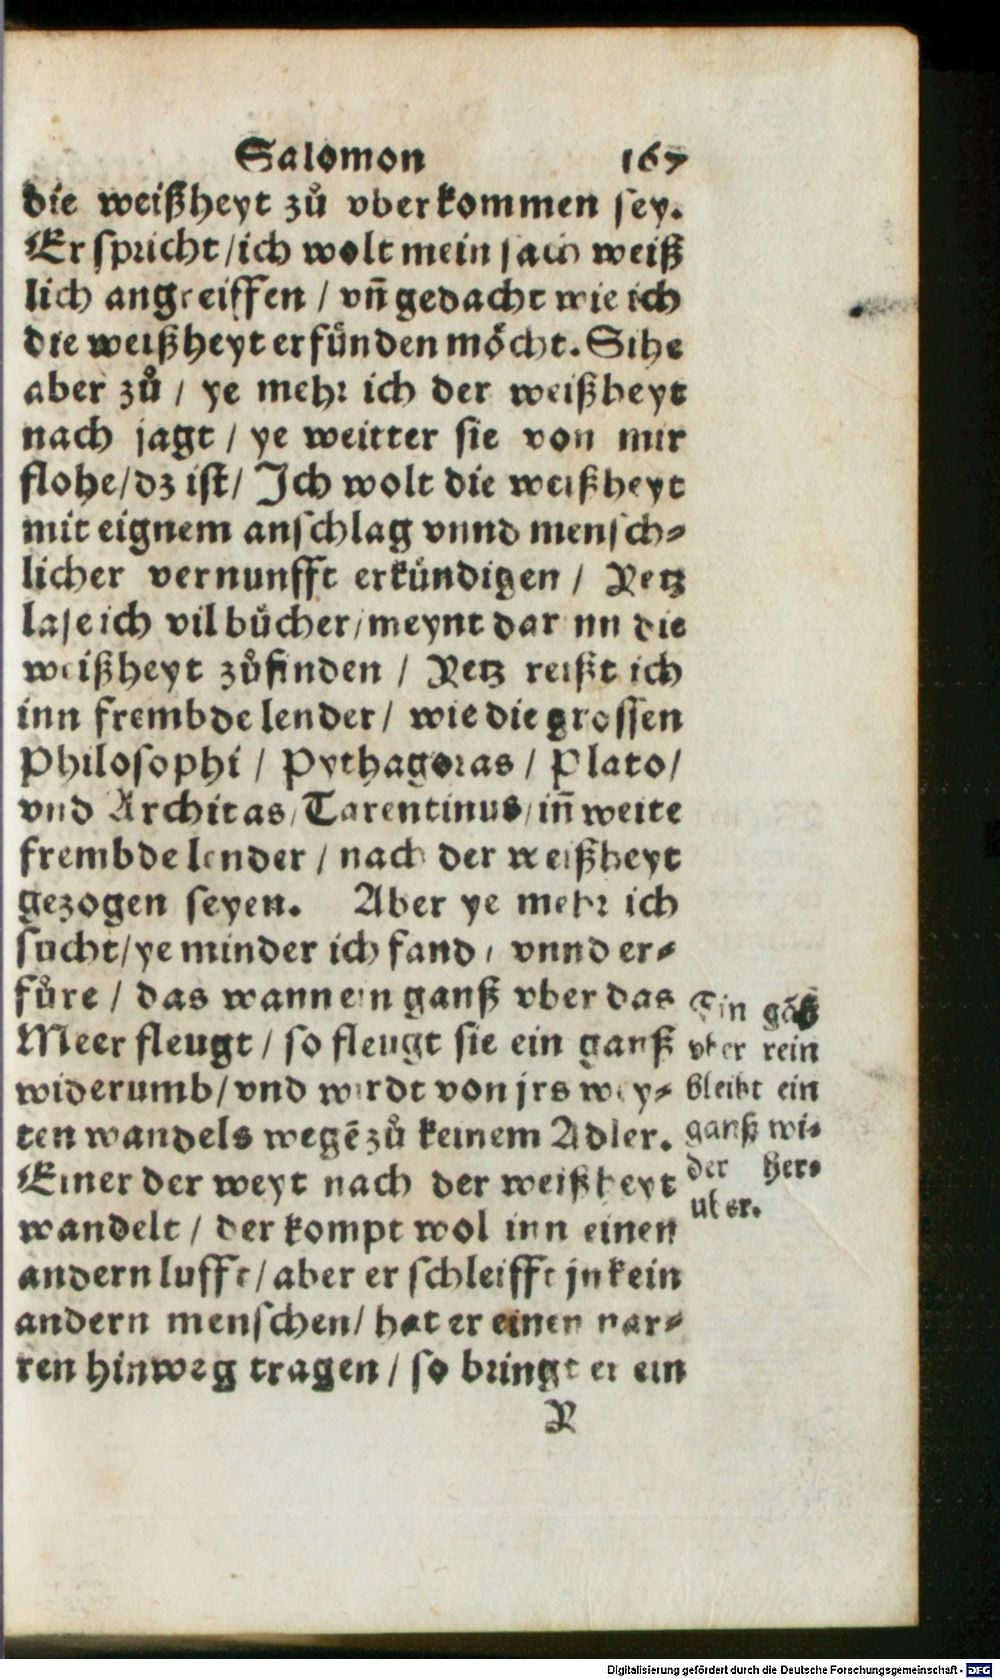 Salomon 167
die weißheyt zů vberkommen sey.
Er spricht/ich wolt mein sach weiß
lich angreiffen / vñ gedacht wie ich
die weißheyt erfünden möcht. Sihe
aber zů / ye mehr ich der weißheyt
nach jagt / ye weitter sie von mir
flohe/dz ist/ Ich wolt die weißheyt
mit eignem anschlag vnnd mensch-
licher vernunfft erkündigen / Yetz
lase ich vil bücher/meynt darinn die
weißheyt zůfinden / Yetz reißt ich
inn frembde lender/ wie die grossen
Philosophi / Pythagoras / Plato/
vnd Architas/Tarentinus/inn weite
frembde lender / nach der weißheyt
gezogen seyen. Aber ye mehr ich
sucht/ye minder ich fand / vnnd er-
fůre / das wann ein ganß vber das
Meer fleugt / so fleugt sie ein ganß
widerumb/vnd wirdt von jrs wey-
ten wandels wegẽ zů keinem Adler.
Einer der weyt nach der weißheyt
wandelt / der kompt wol inn einen
andern lufft/aber er schleifft jn kein
andern menschen/ hat er einen nar-
ren hinweg tragen / so bringt er ein
Y
Ein gãß
vber rein
bleibt ein
ganß wi-
der her-
uber.
Digitalisierung gefördert durch die Deutsche Forschungsgemeinschaft - DFG